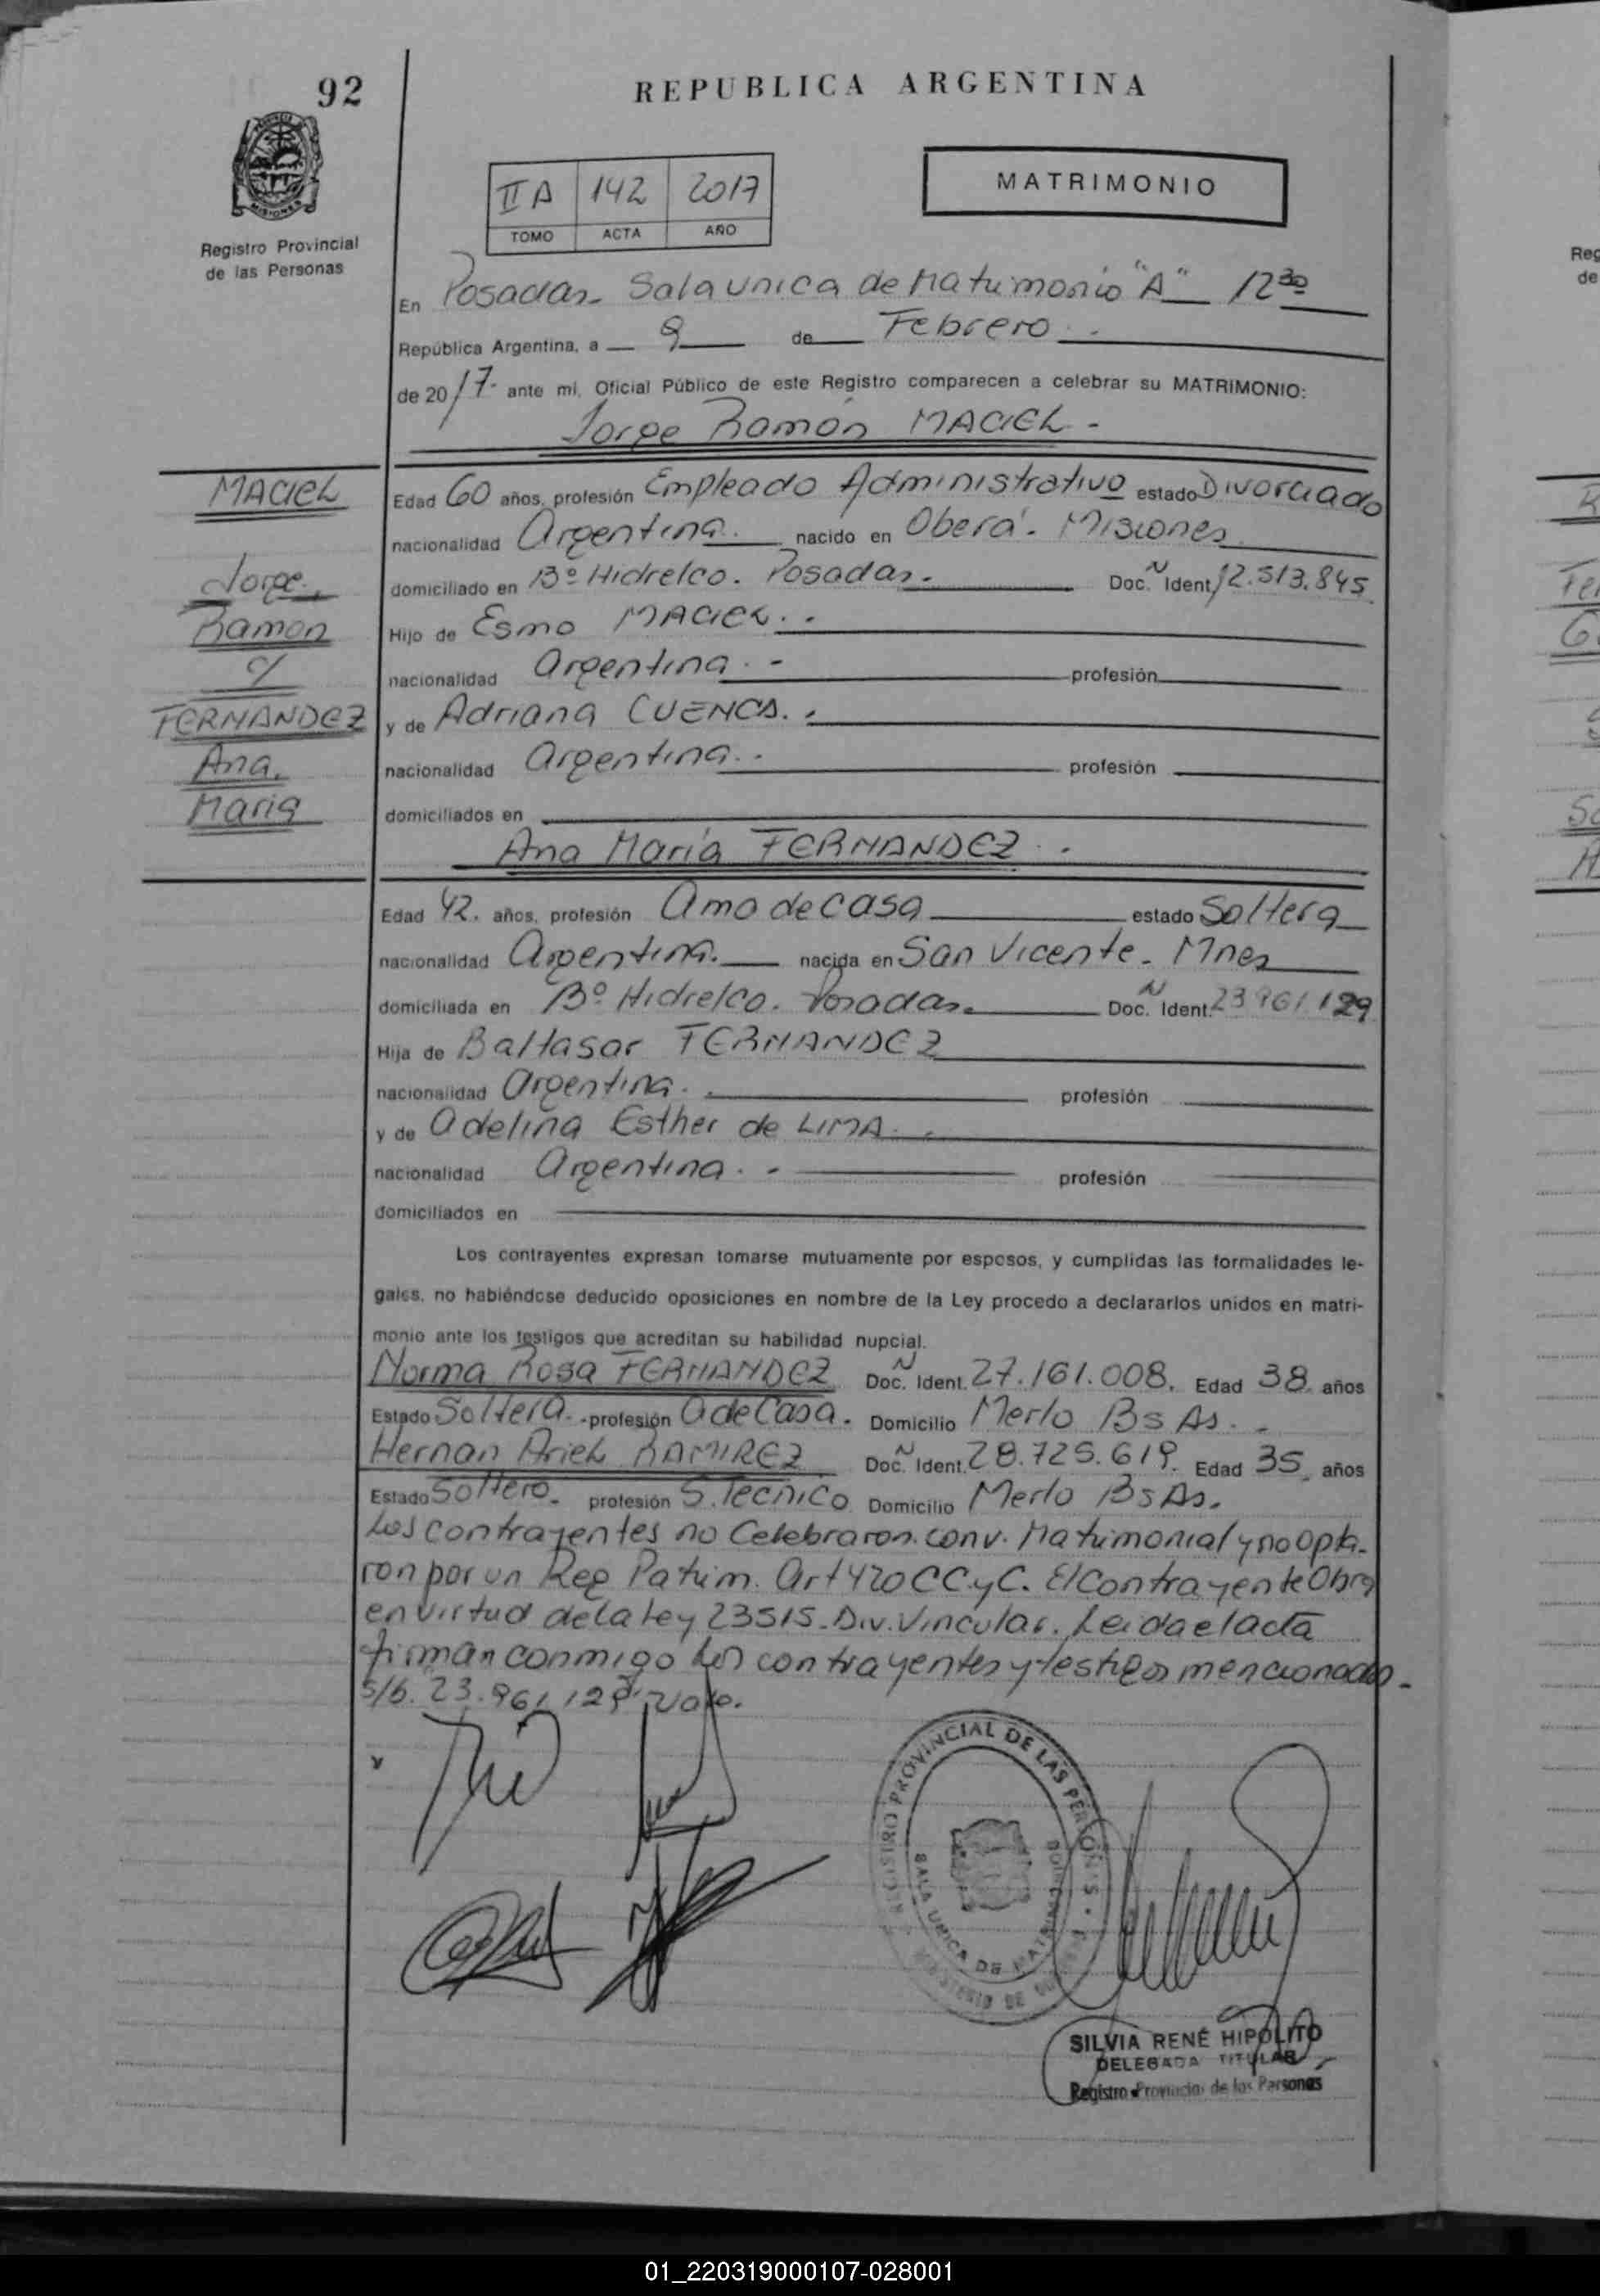 92
REPUBLICA ARGENTINA
Registro Provincial
de las Personas
MISIONES
II A 142 2017
TOMO ACTA AÑO
MATRIMONIO
En Posadas. Sala unica de Matrimonio "A" 12 30
República Argentina, a 9 de Febrero.
de 2017. ante mi, Oficial Público de este Registro comparecen a celebrar su MATRIMONIO:
Jorge Ramón MACIEL.
MACIEL
Jorge
Ramon
c/
FERNANDEZ
Ana
Maria
Edad 60 años, profesión Empleado Administrativo estado Divorciado
nacionalidad Argentina. nacido en Oberá. Misiones
domiciliado en Bº Hidrelco. Posadas. Doc. N Ident. 12.513.845
Hijo de Esmo MACIEL.
nacionalidad Argentina. profesión
y de Adriana CUENCA.
nacionalidad Argentina. profesión
domiciliados en
Ana María FERNANDEZ.
Edad 42. años, profesión Ama de casa estado Soltera
nacionalidad Argentina. nacida en San Vicente. Mnes
domiciliada en Bº Hidrelco. Posadas. Doc. N Ident. 23961129
Hija de Baltasar FERNANDEZ
nacionalidad Argentina. profesión
y de Adelina Esther de LIMA.
nacionalidad Argentina. profesión
domiciliados en
Los contrayentes expresan tomarse mutuamente por esposos, y cumplidas las formalidades le-
gales, no habiéndose deducido oposiciones en nombre de la Ley procedo a declararlos unidos en matri-
monio ante los testigos que acreditan su habilidad nupcial.
Norma Rosa FERNANDEZ Doc. N Ident. 27.161.008. Edad 38. años
Estado Soltera. profesión A de Casa. Domicilio Merlo Bs As.
Hernan Ariel RAMIREZ Doc. N Ident. 28.725.619. Edad 35 años
Estado Soltero. profesión S. Tecnico Domicilio Merlo Bs As.
Los contrayentes no Celebraron conv. Matrimonial y no opta-
ron por un Reg Patrim. Art 420 CC y C. El Contrayente Obra
en virtud de la Ley 23515. Div. Vincular. Leida el acta
firman conmigo los contrayentes y testigos mencionados.
s/b. 23.961.129 Vale.
REGISTRO PROVINCIAL DE LAS PERSONAS
SALA UNICA DE MATRIMONIO
SILVIA RENÉ HIPOLITO
DELEGADA TITULAR
Registro Provincial de las Personas
01_220319000107-028001